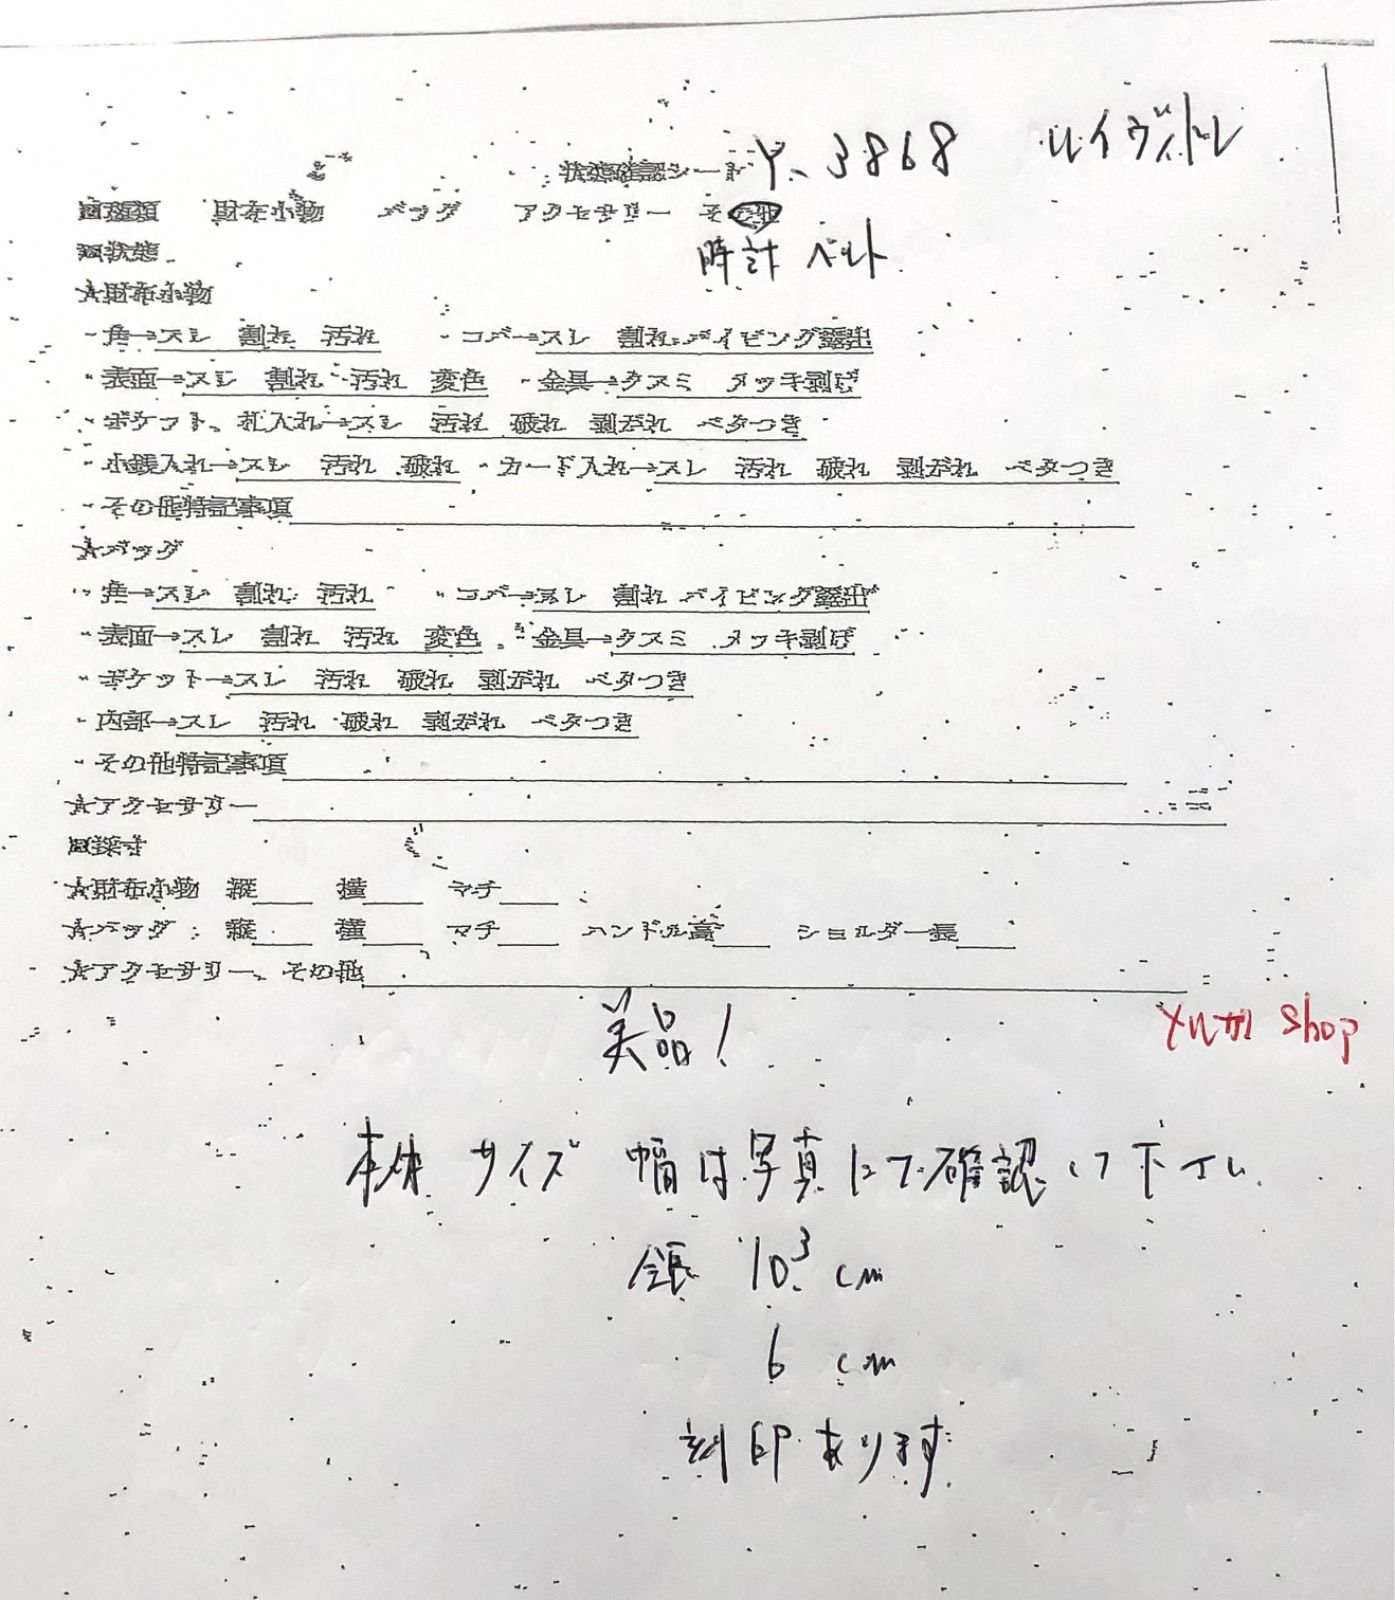 Y、3868 ルイヴィトン
状態確認シート
■種類 財布小物 バッグ アクセサリー その他
時計 ベルト
■状態
★財布小物
・角→スレ 割れ 汚れ ・コバ→スレ 割れ パイピング露出
・表面→スレ 割れ 汚れ 変色 ・金具→クスミ メッキ剥げ
・ポケット、札入れ→スレ 汚れ 破れ 剥がれ ベタつき
・小銭入れ→スレ 汚れ 破れ ・カード入れ→スレ 汚れ 破れ 剥がれ ベタつき
・その他特記事項
★バッグ
・角→スレ 割れ 汚れ ・コバ→スレ 割れ パイピング露出
・表面→スレ 割れ 汚れ 変色 ・金具→クスミ メッキ剥げ
・ポケット→スレ 汚れ 破れ 剥がれ ベタつき
・内部→スレ 汚れ 破れ 剥がれ ベタつき
・その他特記事項
★アクセサリー
■採寸
★財布小物 縦 横 マチ
★バッグ 縦 横 マチ ハンドル高 ショルダー長
★アクセサリー、その他
美品!
メルカリ Shop
本体 サイズ 幅は写真にて確認して下さい
全長 10³ cm
6 cm
刻印あります